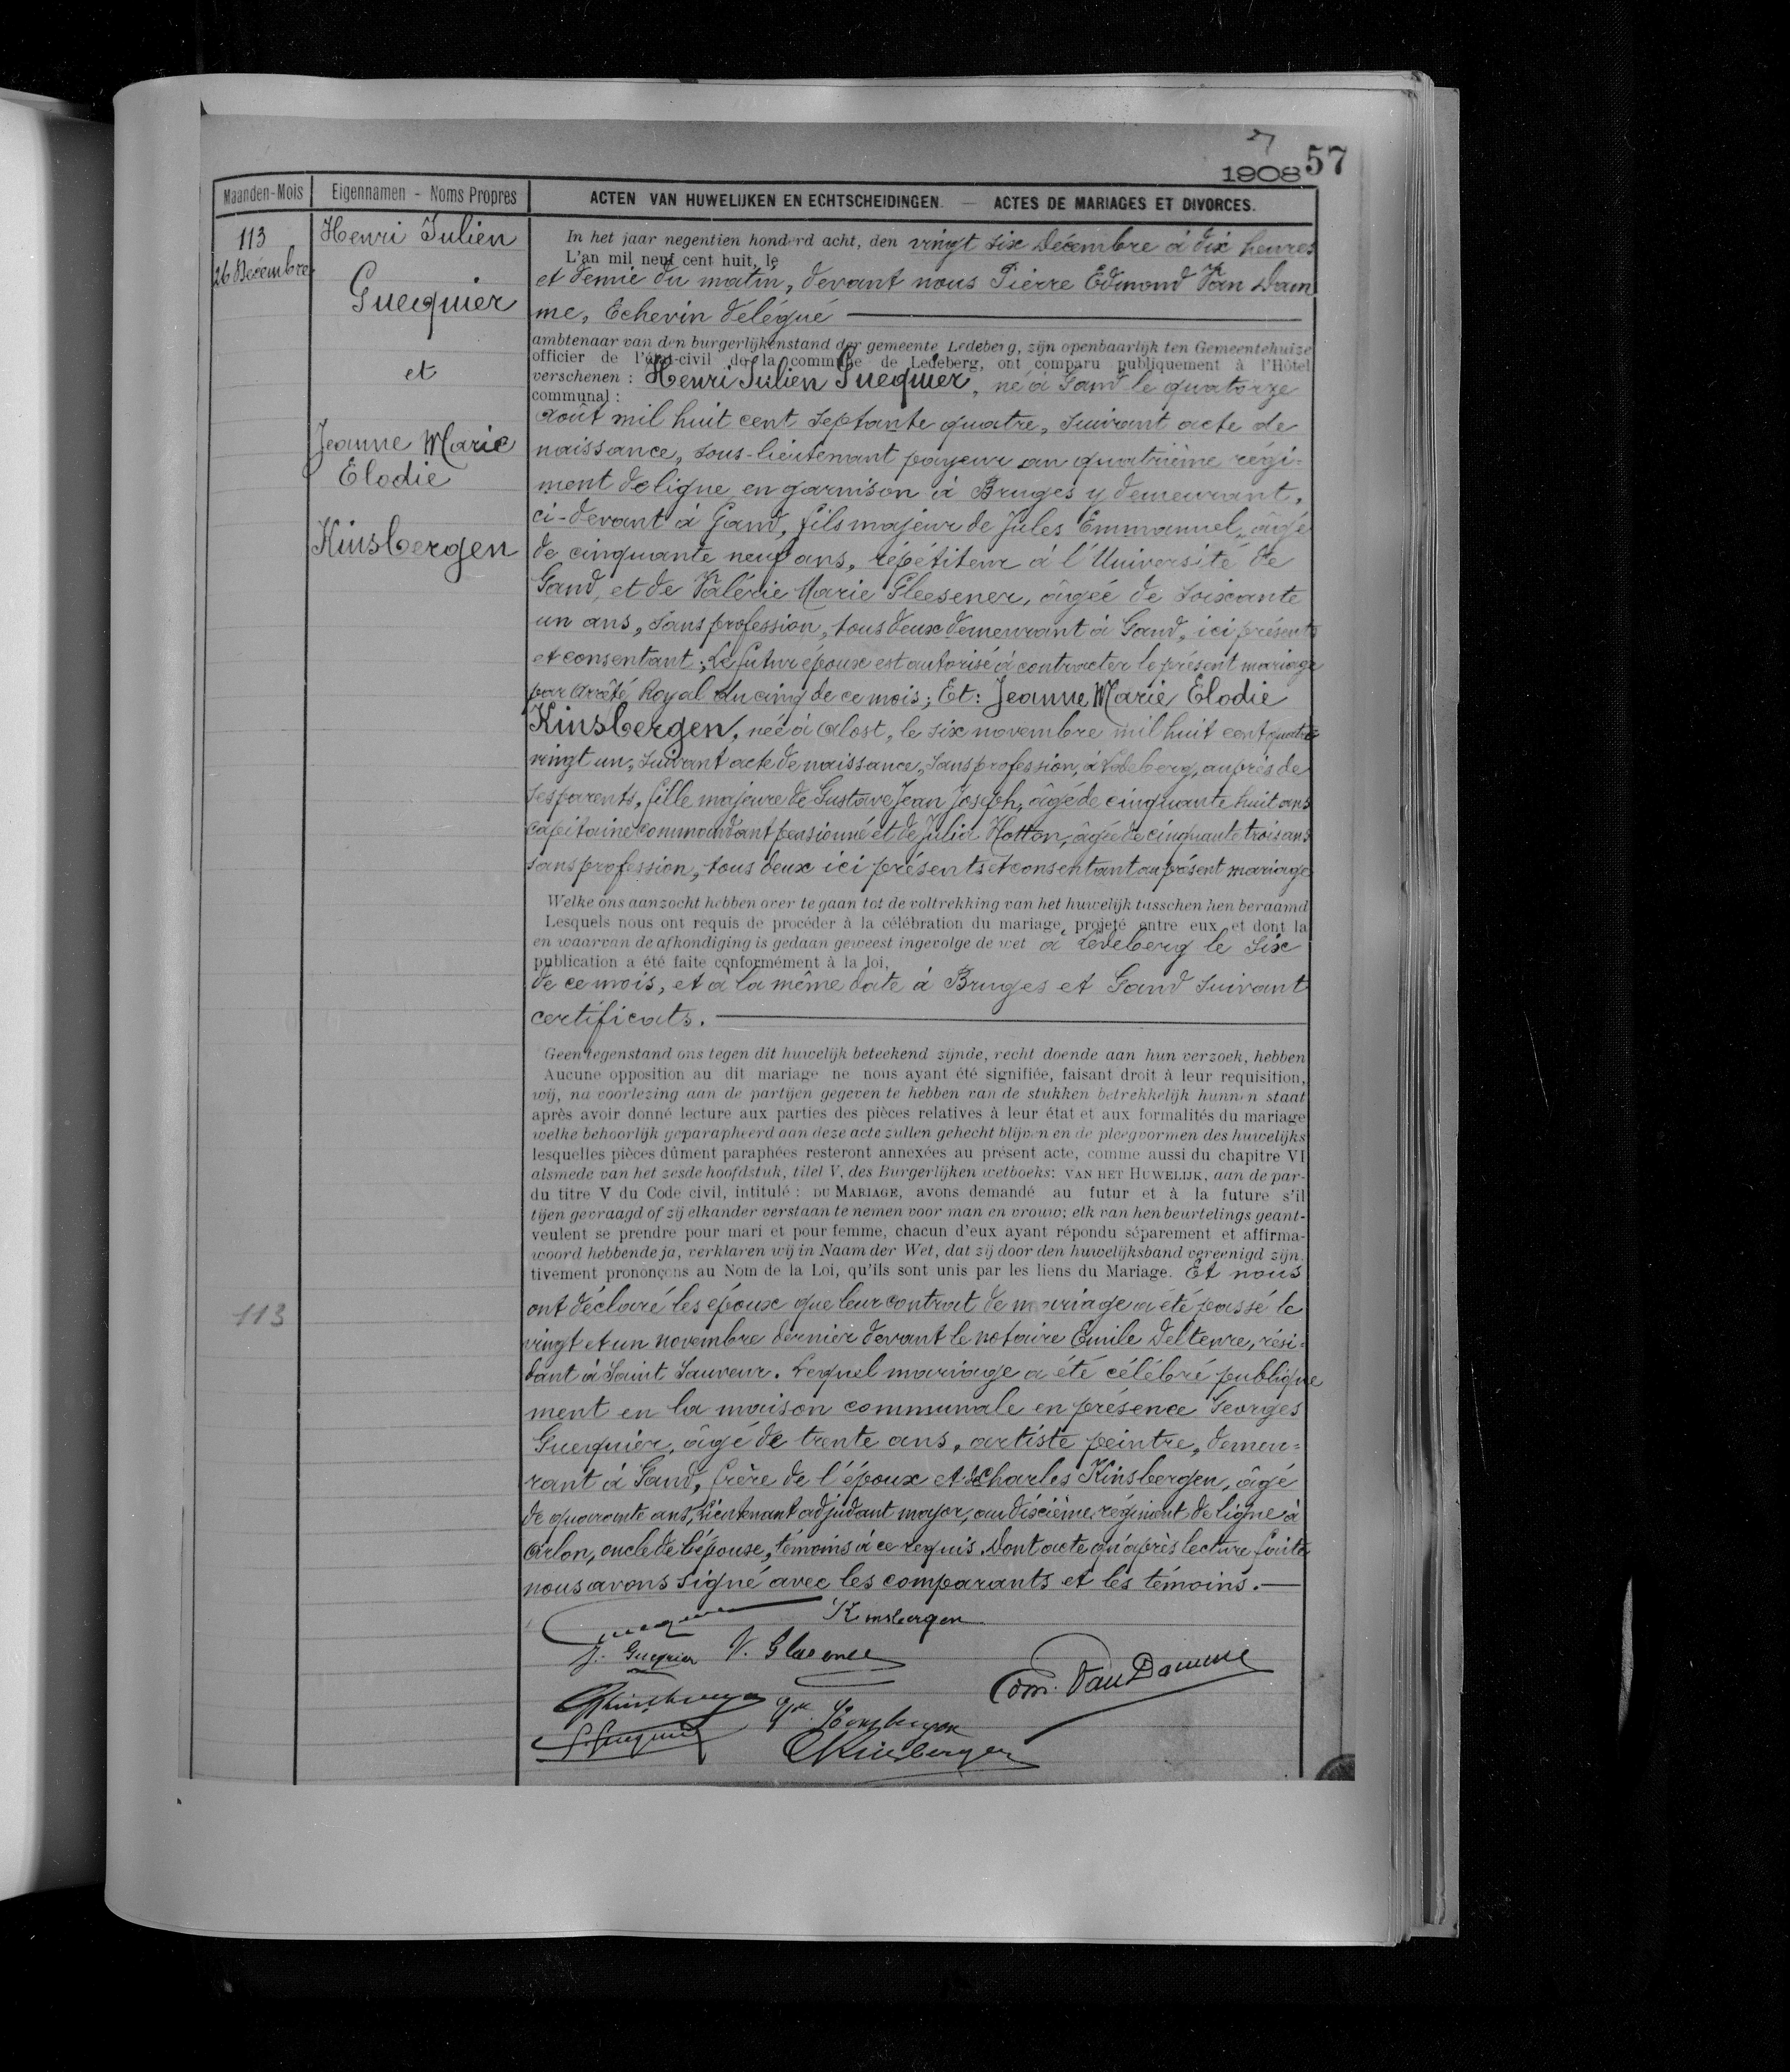 57
1908
Maanden-Mois
Eigennamen - Noms Propres
ACTEN VAN HUWELIJKEN EN ECHTSCHEIDINGEN. — ACTES DE MARIAGES ET DIVORCES.
113
26 Decembre
Henri Julien
Guequier
et
Jeanne Marie
Elodie
Kinsbergen
In het jaar negentien honderd acht, den vingt six Décembre à dix heures
L'an mil neuf cent huit, le
et demie du matin, devant nous Pierre Edmond Van Dam
me, Echevin délégué
ambtenaar van den burgerlijkenstand der gemeente Ledeberg, zijn openbaarlijk ten Gemeentehuize
officier de l'état-civil de la commune de Ledeberg, ont comparu publiquement à l'Hôtel
verschenen : Henri Julien Guequier, né à Gand le quatorze
communal :
août mil huit cent septante quatre, suivant acte de
naissance, sous-lieutenant payeur au quatrième régi-
ment de ligne en garnison à Bruges y demeurant,
ci-devant à Gand, fils majeur de Jules Emmanuel, âgé
de cinquante neuf ans, répétiteur à l'Université de
Gand, et de Valérie Marie Gleesener, âgée de soixante
un ans, sans profession, tous deux demeurant à Gand, ici présents
et consentant; Le futur époux est autorisé à contracter le présent mariage
par Arrêté Royal du cinq de ce mois; Et: Jeanne Marie Elodie
Kinsbergen, née à Alost, le six novembre mil huit cent quatre
vingt un, suivant acte de naissance, sans profession, à Ledeberg, auprès de
ses parents, fille majeure de Gustave Jean Joseph, âgé de cinquante huit ans
capitaine commandant pensionné et de Julia Hotton, âgée de cinquante trois ans
sans profession, tous deux ici présents et consentant au présent mariage
Welke ons aanzocht hebben over te gaan tot de voltrekking van het huwelijk tusschen hen beraamd
Lesquels nous ont requis de procéder à la célébration du mariage projeté entre eux et dont la
en waarvan de afkondiging is gedaan geweest ingevolge de wet à Ledeberg le six
publication a été faite conformément à la loi,
de ce mois, et à la même date à Bruges et Gand suivant
certificats.
Geen tegenstand ons tegen dit huwelijk beteekend zijnde, recht doende aan hun verzoek, hebben
Aucune opposition au dit mariage ne nous ayant été signifiée, faisant droit à leur requisition,
wij, na voorlezing aan de partijen gegeven te hebben van de stukken betrekkelijk hunnen staat
après avoir donné lecture aux parties des pièces relatives à leur état et aux formalités du mariage
welke behoorlijk geparapheerd aan deze acte zullen gehecht blijven en de pleegvormen des huwelijks
lesquelles pièces dûment paraphées resteront annexées au présent acte, comme aussi du chapitre VI
alsmede van het zesde hoofdstuk, titel V, des Burgerlijken wetboeks: VAN HET HUWELIJK, aan de par-
du titre V du Code civil, intitulé : DU MARIAGE, avons demandé au futur et à la future s'il
tijen gevraagd of zij elkander verstaan te nemen voor man en vrouw; elk van hen beurtelings geant-
veulent se prendre pour mari et pour femme, chacun d'eux ayant répondu séparement et affirma-
woord hebbende ja, verklaren wij in Naam der Wet, dat zij door den huwelijksband vereenigd zijn.
tivement prononçons au Nom de la Loi, qu'ils sont unis par les liens du Mariage. Et nous
113
ont déclaré les époux que leur contrat de mariage a été passé le
vingt et un novembre dernier devant le notaire Emile Deltenre, rési-
dant à Saint Sauveur. Lequel mariage a été célébré publique
ment en la maison communale en présence Georges
Guequier, âgé de trente ans, artiste peintre, demeu-
rant à Gand, frère de l'époux et de Charles Kinsbergen, âgé
de quarante ans, Lieutenant adjudant major, au dixième régiment de ligne à
Arlon, oncle de l'épouse, témoins à ce requis. Dont acte qu'après lecture faite
nous avons signé avec les comparants et les témoins.
Kinsbergen
J. Guequier V. Glesener
Edm. Van Damme
Kinsbergen
G. Guequier
CKinsbergen